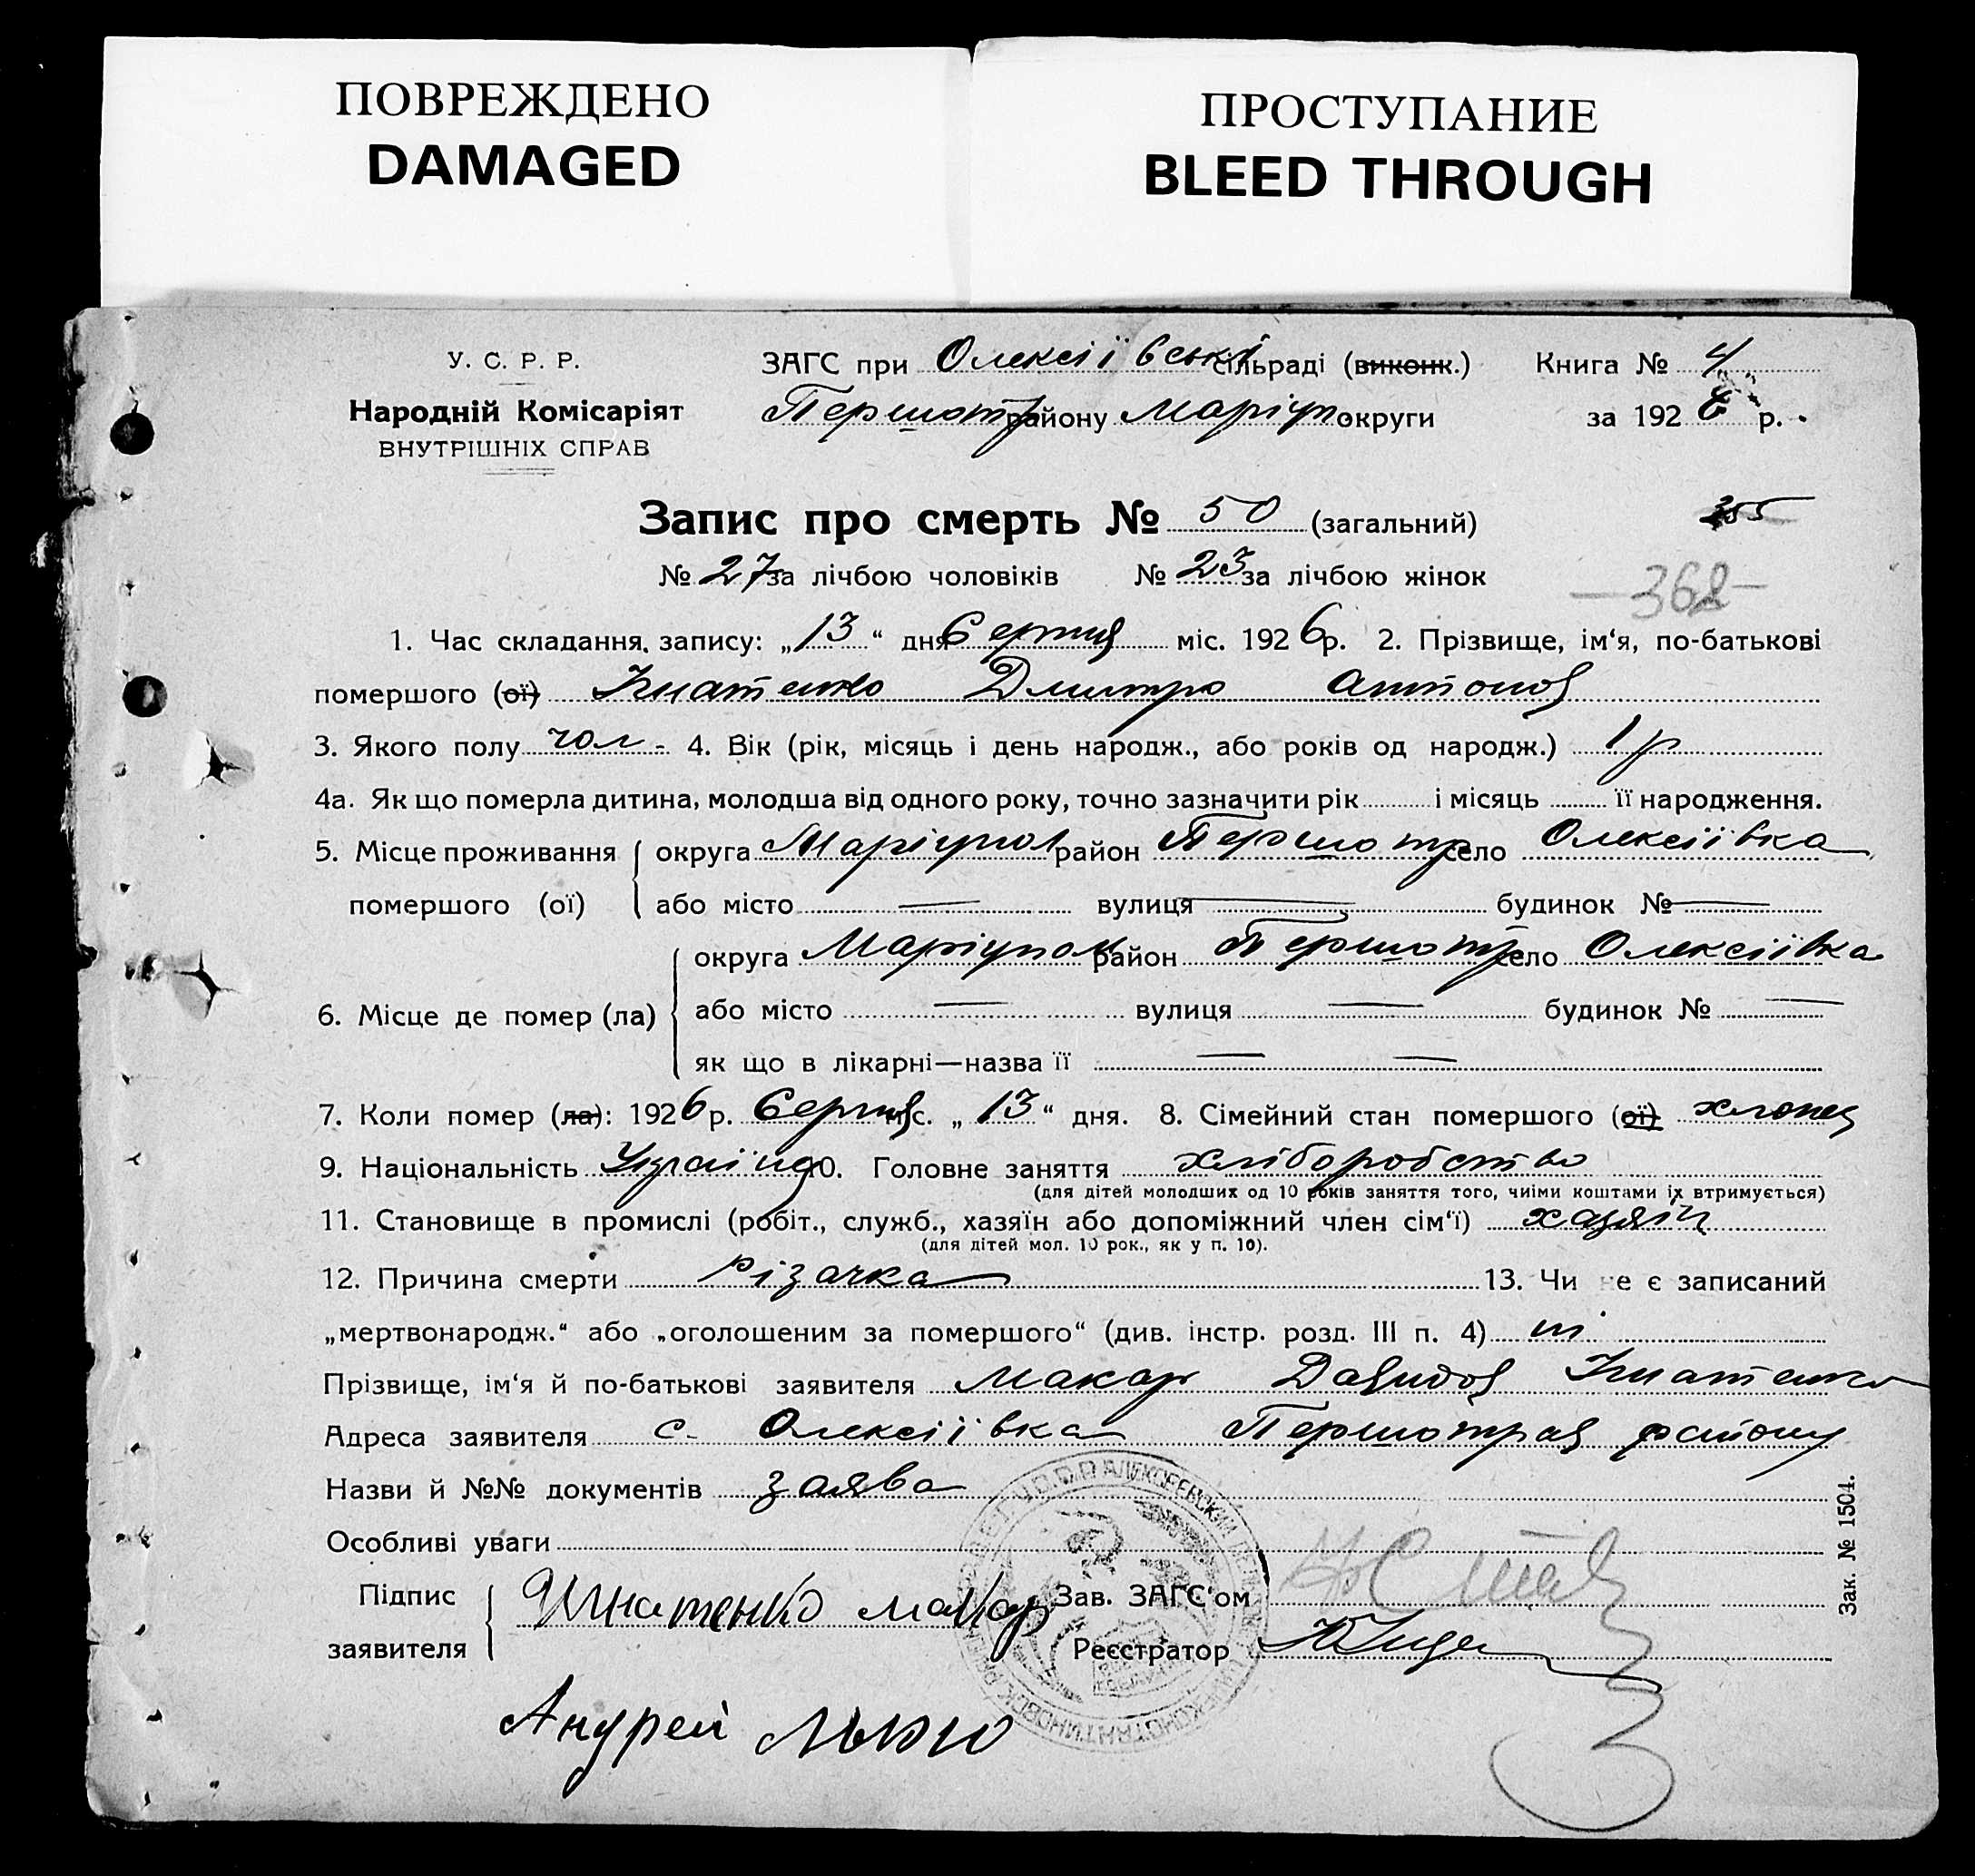 ПОВРЕЖДЕНО
DAMAGED
ПРОСТУПАНИЕ
BLEED THROUGH
У. С. Р. Р.
Народній Комісаріят
ВНУТРІШНІХ СПРАВ
ЗАГС при Олексіївській сільраді (виконк.)
Першотр району Маріуп. округи
Книга № 4
за 1926 р.
Запис про смерть № 50 (загальний)
355
№ 27 за лічбою чоловіків № 23 за лічбою жінок
-362-
1. Час складання запису: „13“ дня Серпня міс. 1926 р. 2. Прізвище, ім‘я, по-батькові
помершого (ої) Ігнатенко Дмитро Антонов
3. Якого полу чол. 4. Вік (рік, місяць і день народж., або років од народж.) 1 р
4а. Як що померла дитина, молодша від одного року, точно зазначити рік і місяць її народження.
5. Місце проживання помершого (ої) округа Маріупол район Першотр село Олексіївка
або місто — вулиця — будинок № —
6. Місце де помер (ла) округа Маріупол район Першотр село Олексіївка
або місто — вулиця — будинок № —
як що в лікарні—назва її — —
7. Коли помер (ла): 1926 р. Серпня міс. „13“ дня. 8. Сімейний стан помершого (ої) хлопец
9. Національність Україн 10. Головне заняття хліборобство
(для дітей молодших од 10 років заняття того, чиїми коштами їх втримується)
11. Становище в промислі (робіт., служб., хазяїн або допоміжний член сім‘ї) хазяїн
(для дітей мол. 10 рок., як у п. 10).
12. Причина смерти різачка 13. Чи не є записаний
„мертвонародж.“ або „оголошеним за помершого“ (див. інстр. розд. III п. 4) ні
Прізвище, ім‘я й по-батькові заявителя Макар Давидов Ігнатенко
Адреса заявителя с. Олексіївка Першотрав району
Назви й №№ документів заява
Особливі уваги
Підпис заявителя Игнатенко Макар
Зав. ЗАГС‘ом
Реєстратор
Андрей
Зак. № 1504.